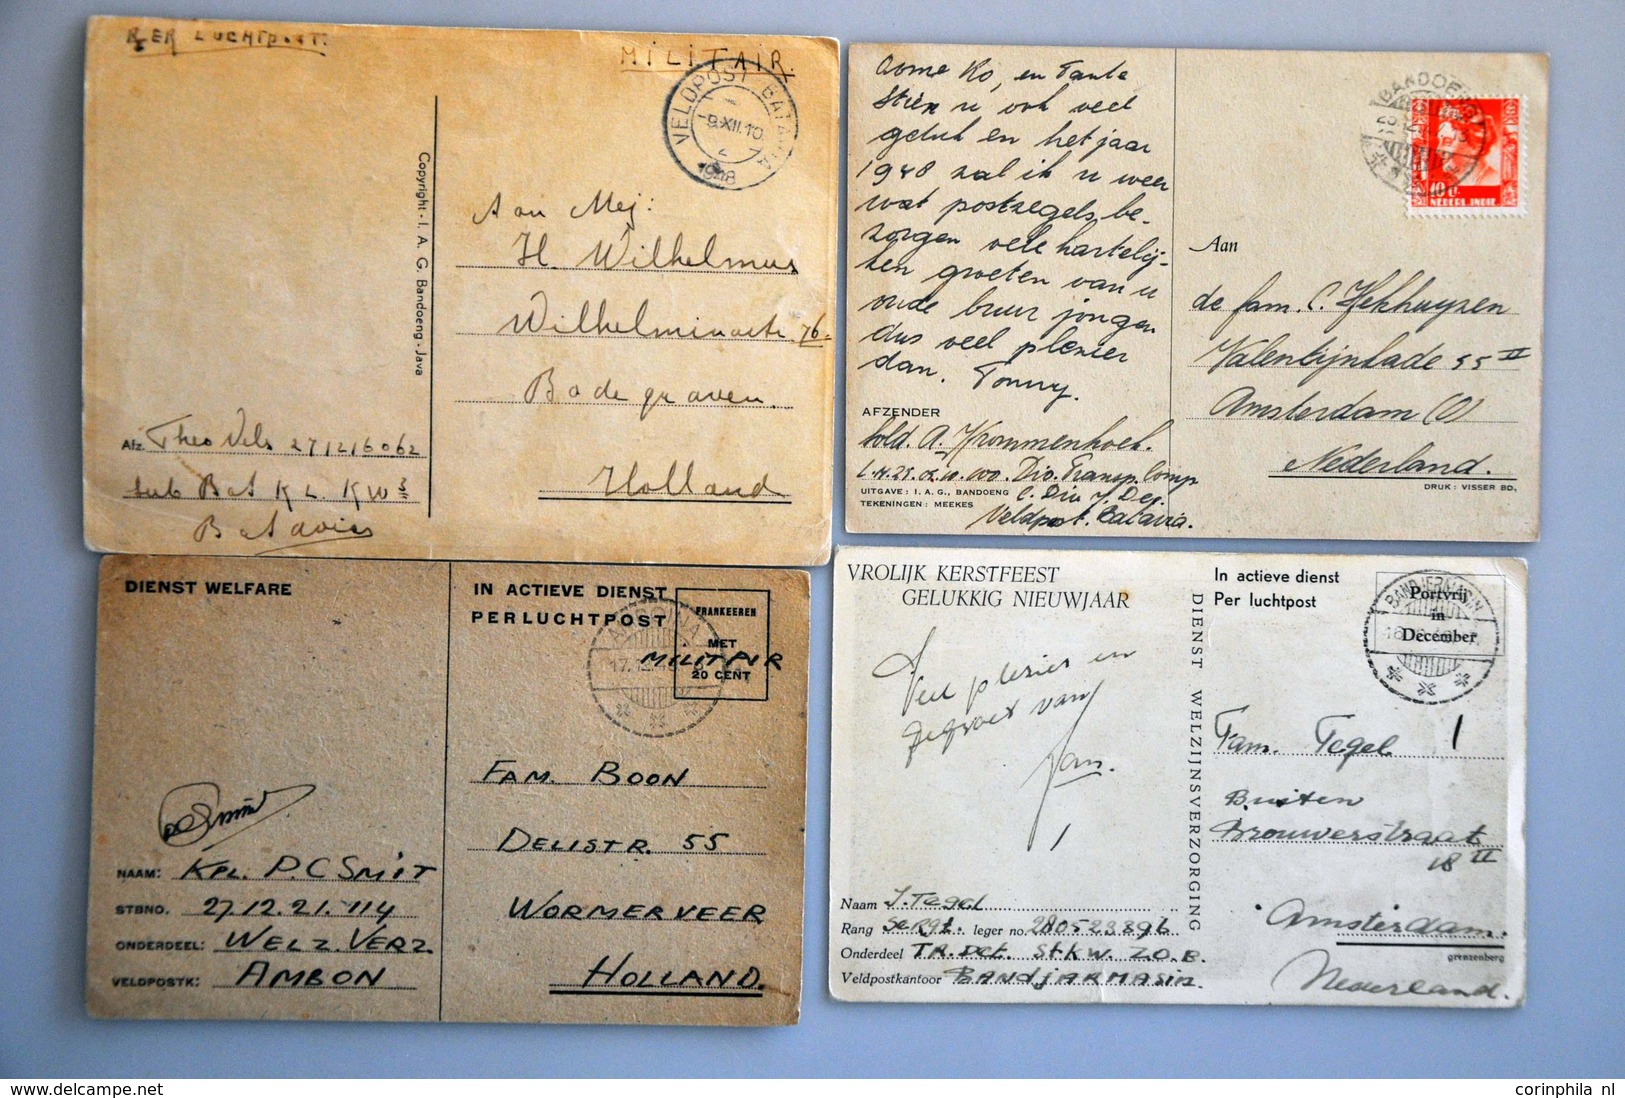 PER LUCHTPOST.
MILITAIR.
VELDPOST BATAVIA
-9.XII.10
2
1948
Copyright - I. A. G. Bandoeng - Java
Aan Mej:
H. Wilhelmus
Wilhelminastr 76.
Bodegraven.
Holland
Afz. Theo Vels 27/12/6062
sub Bat KL. KW 3
Batavia
Ko, en Tante
Stien u ook veel
geluk en het jaar
1948 zal ik u weer
wat postzegels be-
zorgen vele hartelij-
ken groeten van u
oude buur jongen
dus veel plezier
dan. Tonny.
AFZENDER
Sold. A. Krommenhoek.
Div. Transp. Comp
UITGAVE: I. A. G., BANDOENG C. Div 7 Dec.
TEKENINGEN: MEEKES Veldpost. Batavia.
BANDOENG
10 ct.
NEDERL. INDIE
Aan
de fam. C. Hekhuyzen
Valentijnkade 55 II
Amsterdam (O)
Nederland.
DRUK: VISSER BD,
DIENST WELFARE
NAAM: KPL. P.C SMIT
STBNO. 27.12.21.114
ONDERDEEL: WELZ. VERZ
VELDPOSTK: AMBON
IN ACTIEVE DIENST
PER LUCHTPOST
FRANKEEREN
MET
20 CENT
MILITAIR
AMBOINA
FAM. BOON
DELISTR. 55
WORMERVEER
HOLLAND.
VROLIJK KERSTFEEST
GELUKKIG NIEUWJAAR
Veel plezier en
gegroet van
Jan.
Naam J. Tegel
Rang Sergt. leger no.
Onderdeel TR. Det. STKW. Z.O.B.
Veldpostkantoor BANDJARMASIN.
DIENST WELZIJNSVERZORGING
In actieve dienst
Per luchtpost
Portvrij
in
December
BANDJERMASIN
Fam. Tegel
Buiten
Brouwerstraat
18 II
Amsterdam.
grenzenberg
Nederland.
corinphila nl